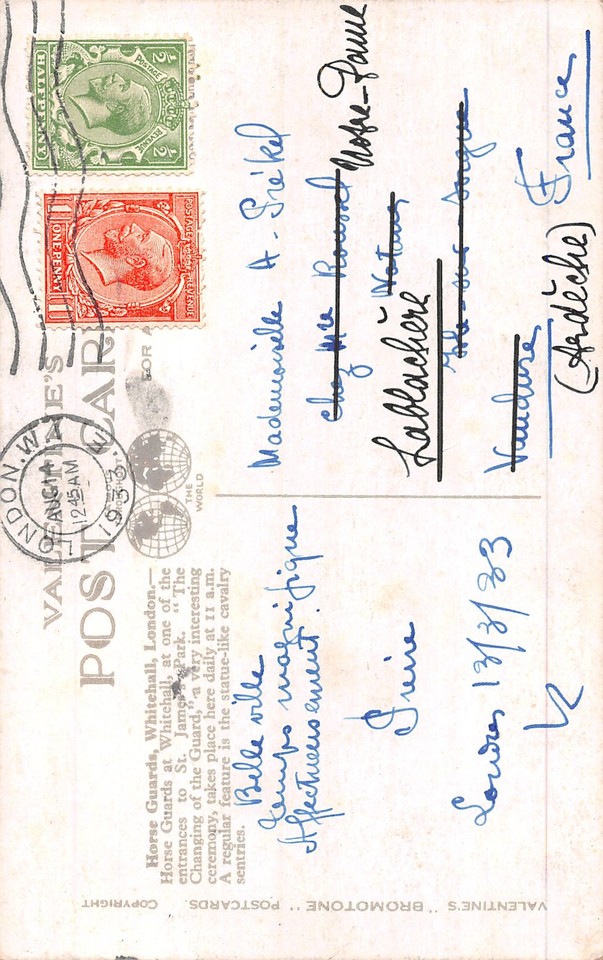 VALENTINE'S
POST CARD
FOR A
THE
WORLD
Horse Guards, Whitehall, London.—
Horse Guards at Whitehall, at one of the
entrances to St. James's Park. "The
Changing of the Guard," a very interesting
ceremony, takes place here daily at 11 a.m.
A regular feature is the statue-like cavalry
sentries.
Belle ville
temps magnifique
Affectueusement.
Londres 13/3/33
VALENTINE'S "BROMOTONE" POSTCARDS. COPYRIGHT
LONDON. W
AUG 14
12 45 AM
1933
POSTAGE REVENUE
½ ½
HALFPENNY
POSTAGE REVENUE
1 1
ONE PENNY
Mademoiselle A-
chez Mme Roussel Notre-Dame
Lablachère
Isle-sur-Sorgue
Vaucluse (Ardèche)
France